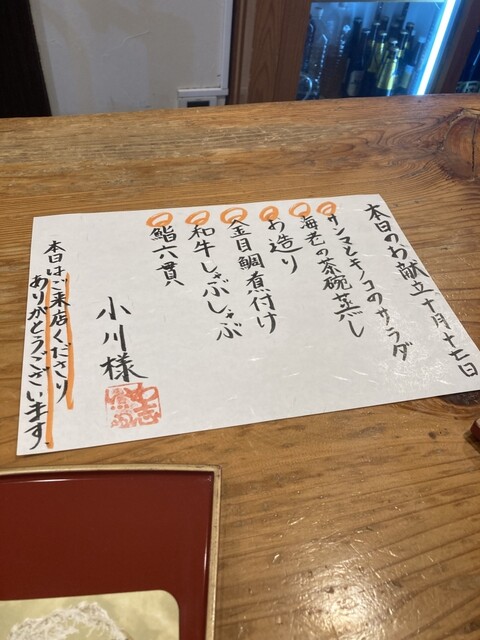 本日のお献立 十月十七日
サンマとキノコのサラダ
海老の茶碗蒸し
お造り
金目鯛煮付け
和牛しゃぶしゃぶ
鮨六貫
小川様
本日はご来店くださり
ありがとうございます